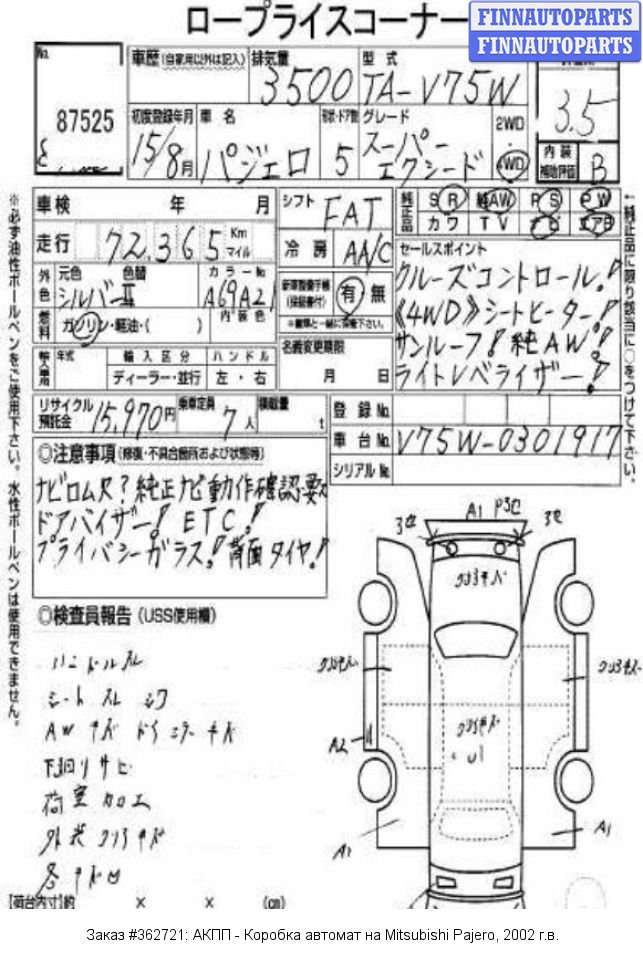 ロープライスコーナー
FINNAUTOPARTS
FINNAUTOPARTS
No.
87525
車歴 (自家用以外は記入)
排気量
3500
型式
TA-V75W
3.5
初度登録年月
15/8月
車名
パジェロ
形状・ドア数
5
グレード
スーパー
エクシード
2WD
4WD
内装
補助評価
B
車検 年 月
シフト
FAT
純正品
SR 純AW PS PW
カワ TV ナビ エアB
走行 72,365 Km マイル
冷房
AAC
セールスポイント
クルーズコントロール!
《4WD》シートヒーター!
サンルーフ! 純AW!
ライトレベライザー!
外色
元色 色替
シルバーⅡ
カラーNo.
A69A21
内装色
新車整備手帳
(保証書付)
有・無
※書類と一緒に完備下さい。
燃料
ガソリン・軽油・( )
輸入車用
年式
輸入区分
ハンドル
ディーラー・並行
左・右
名義変更期限
月 日
リサイクル
預託金
15,970円
乗車定員
7人
積載量
t
登録No.
車台No.
V75W-0301917
シリアルNo.
◎注意事項 (修復・不具合箇所および状態等)
ナビロムヌ?純正ナビ動作確認要ス
ドアバイザー! ETC!
プライバシーガラス!背面タイヤ!
※必ず油性ボールペンをご使用下さい。水性ボールペンは使用できません。
←純正品に限り該当に○をつけて下さい。
◎検査員報告 (USS使用欄)
ハンドルスレ
シートスレ シワ
AWキズ ドアミラーキズ
下回りサビ
荷室カロエ
外装クリアキズ
各キズ凹
A1
A2
A1
A1
【荷台内寸】約 × × (cm)
Заказ #362721: АКПП - Коробка автомат на Mitsubishi Pajero, 2002 г.в.